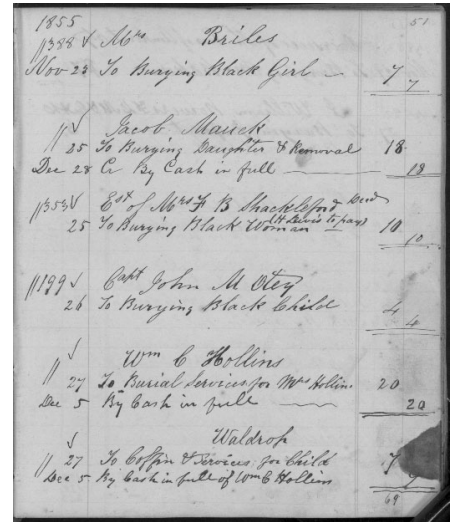 1855 51
1388 √ Mrs Briles
Nov 23 To Burying Black Girl 7
7
√ Jacob Mauck
25 To Burying Daughter & Removal 18
Dec 28 Cr By Cash in full 18
1353 √ Est of Mrs F B Shackleford Decd
(H Lewis to pay)
25 To Burying Black Woman 10
10
1199 √ Capt John M Otey
26 To Burying Black Child 4
4
√ Wm C Hollins
27 To Burial Services for Mrs Hollins 20
Dec 5 By Cash in full 20
√ Waldrop
27 To Coffin & Services for Child 7
Dec 5 By Cash in full of Wm C Hollins
69